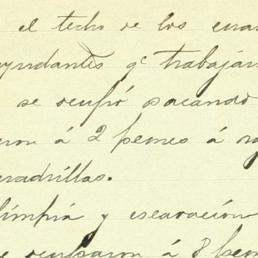 el techo de los cuar
ayudantes qe trabajan
se ocupó sacando
ron á 2 peones á
cuadrillas.
limpia y escavación
ocuparon á 8 peon